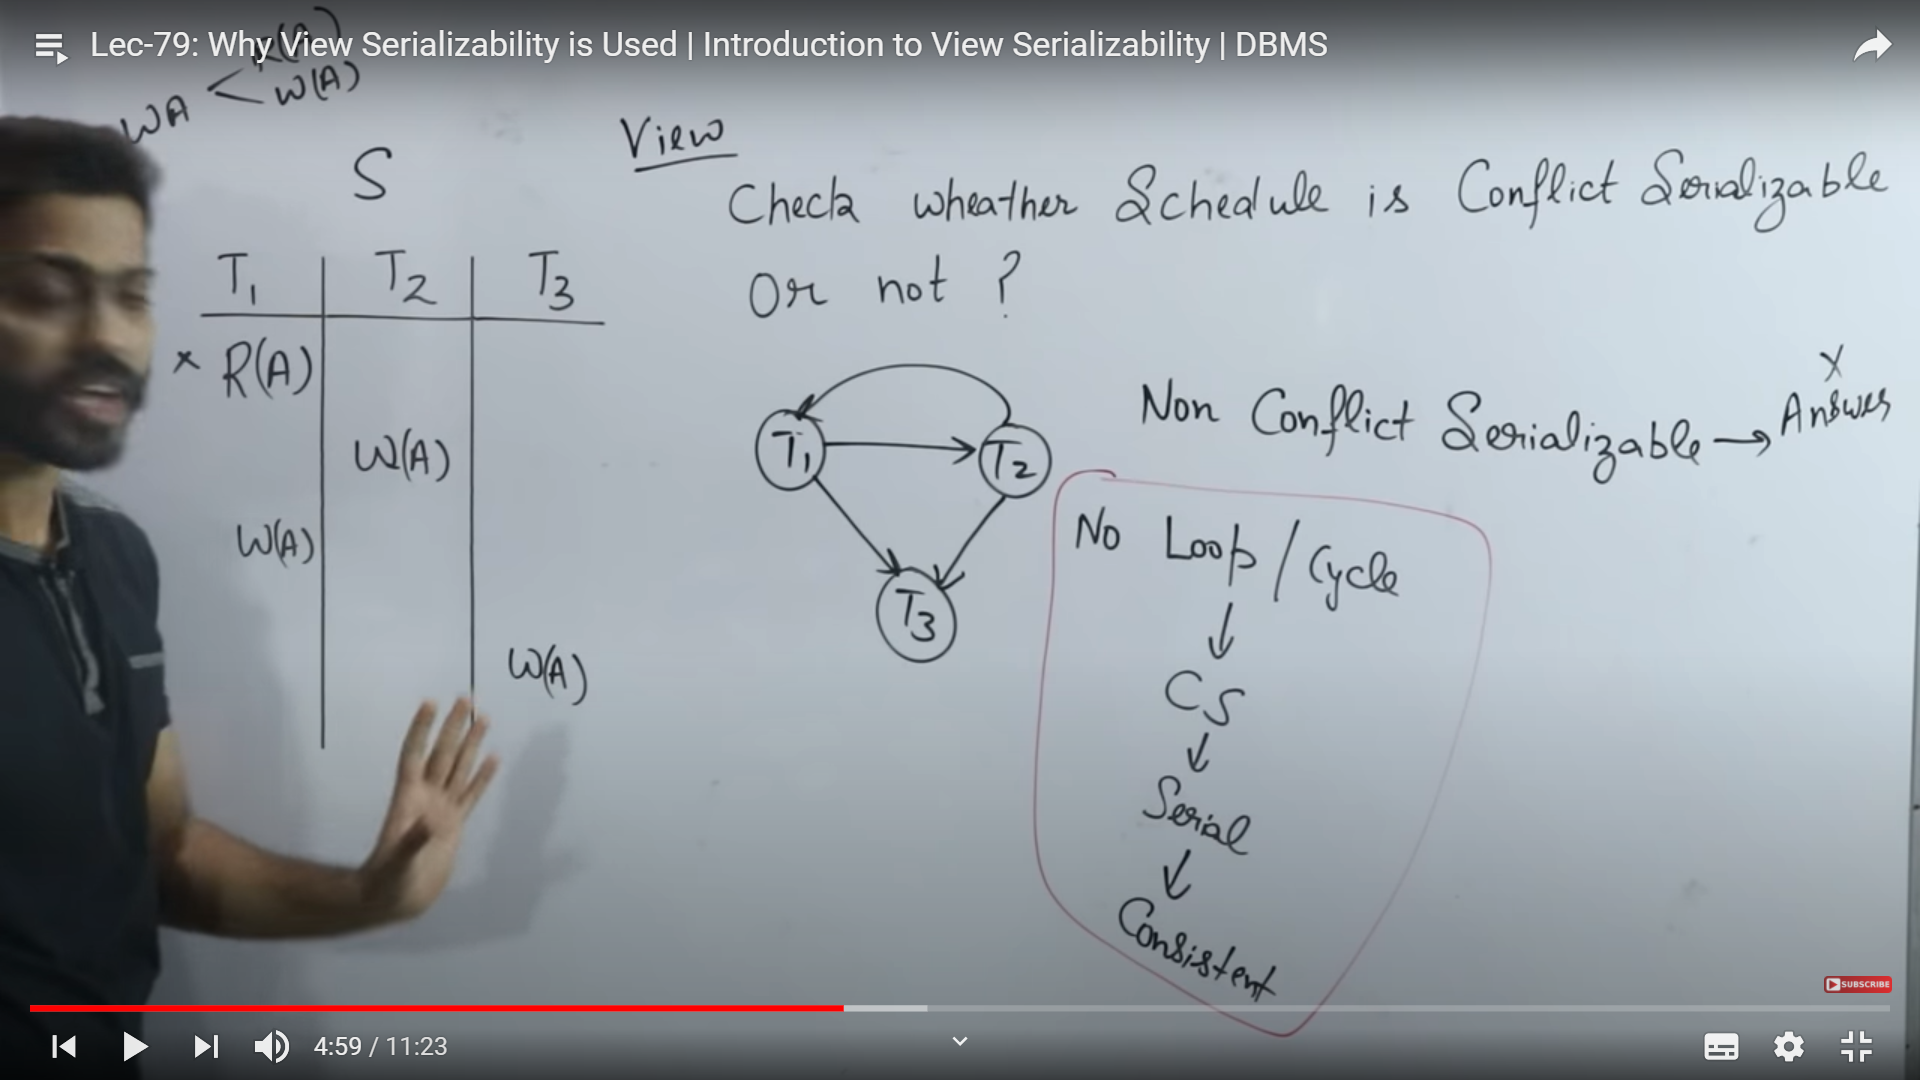 Lec-79: Why View Serializability is Used | Introduction to View Serializability | DBMS
R(A)
WA < W(A)
S
View
Check wheather Schedule is Conflict Serializable
Or not ?
T1 T2 T3
x R(A)
W(A)
W(A)
W(A)
T1 T2
T3
X
Non Conflict Serializable → Answer
No Loop / Cycle
↓
CS
↓
Serial
↓
Consistent
SUBSCRIBE
4:59 / 11:23